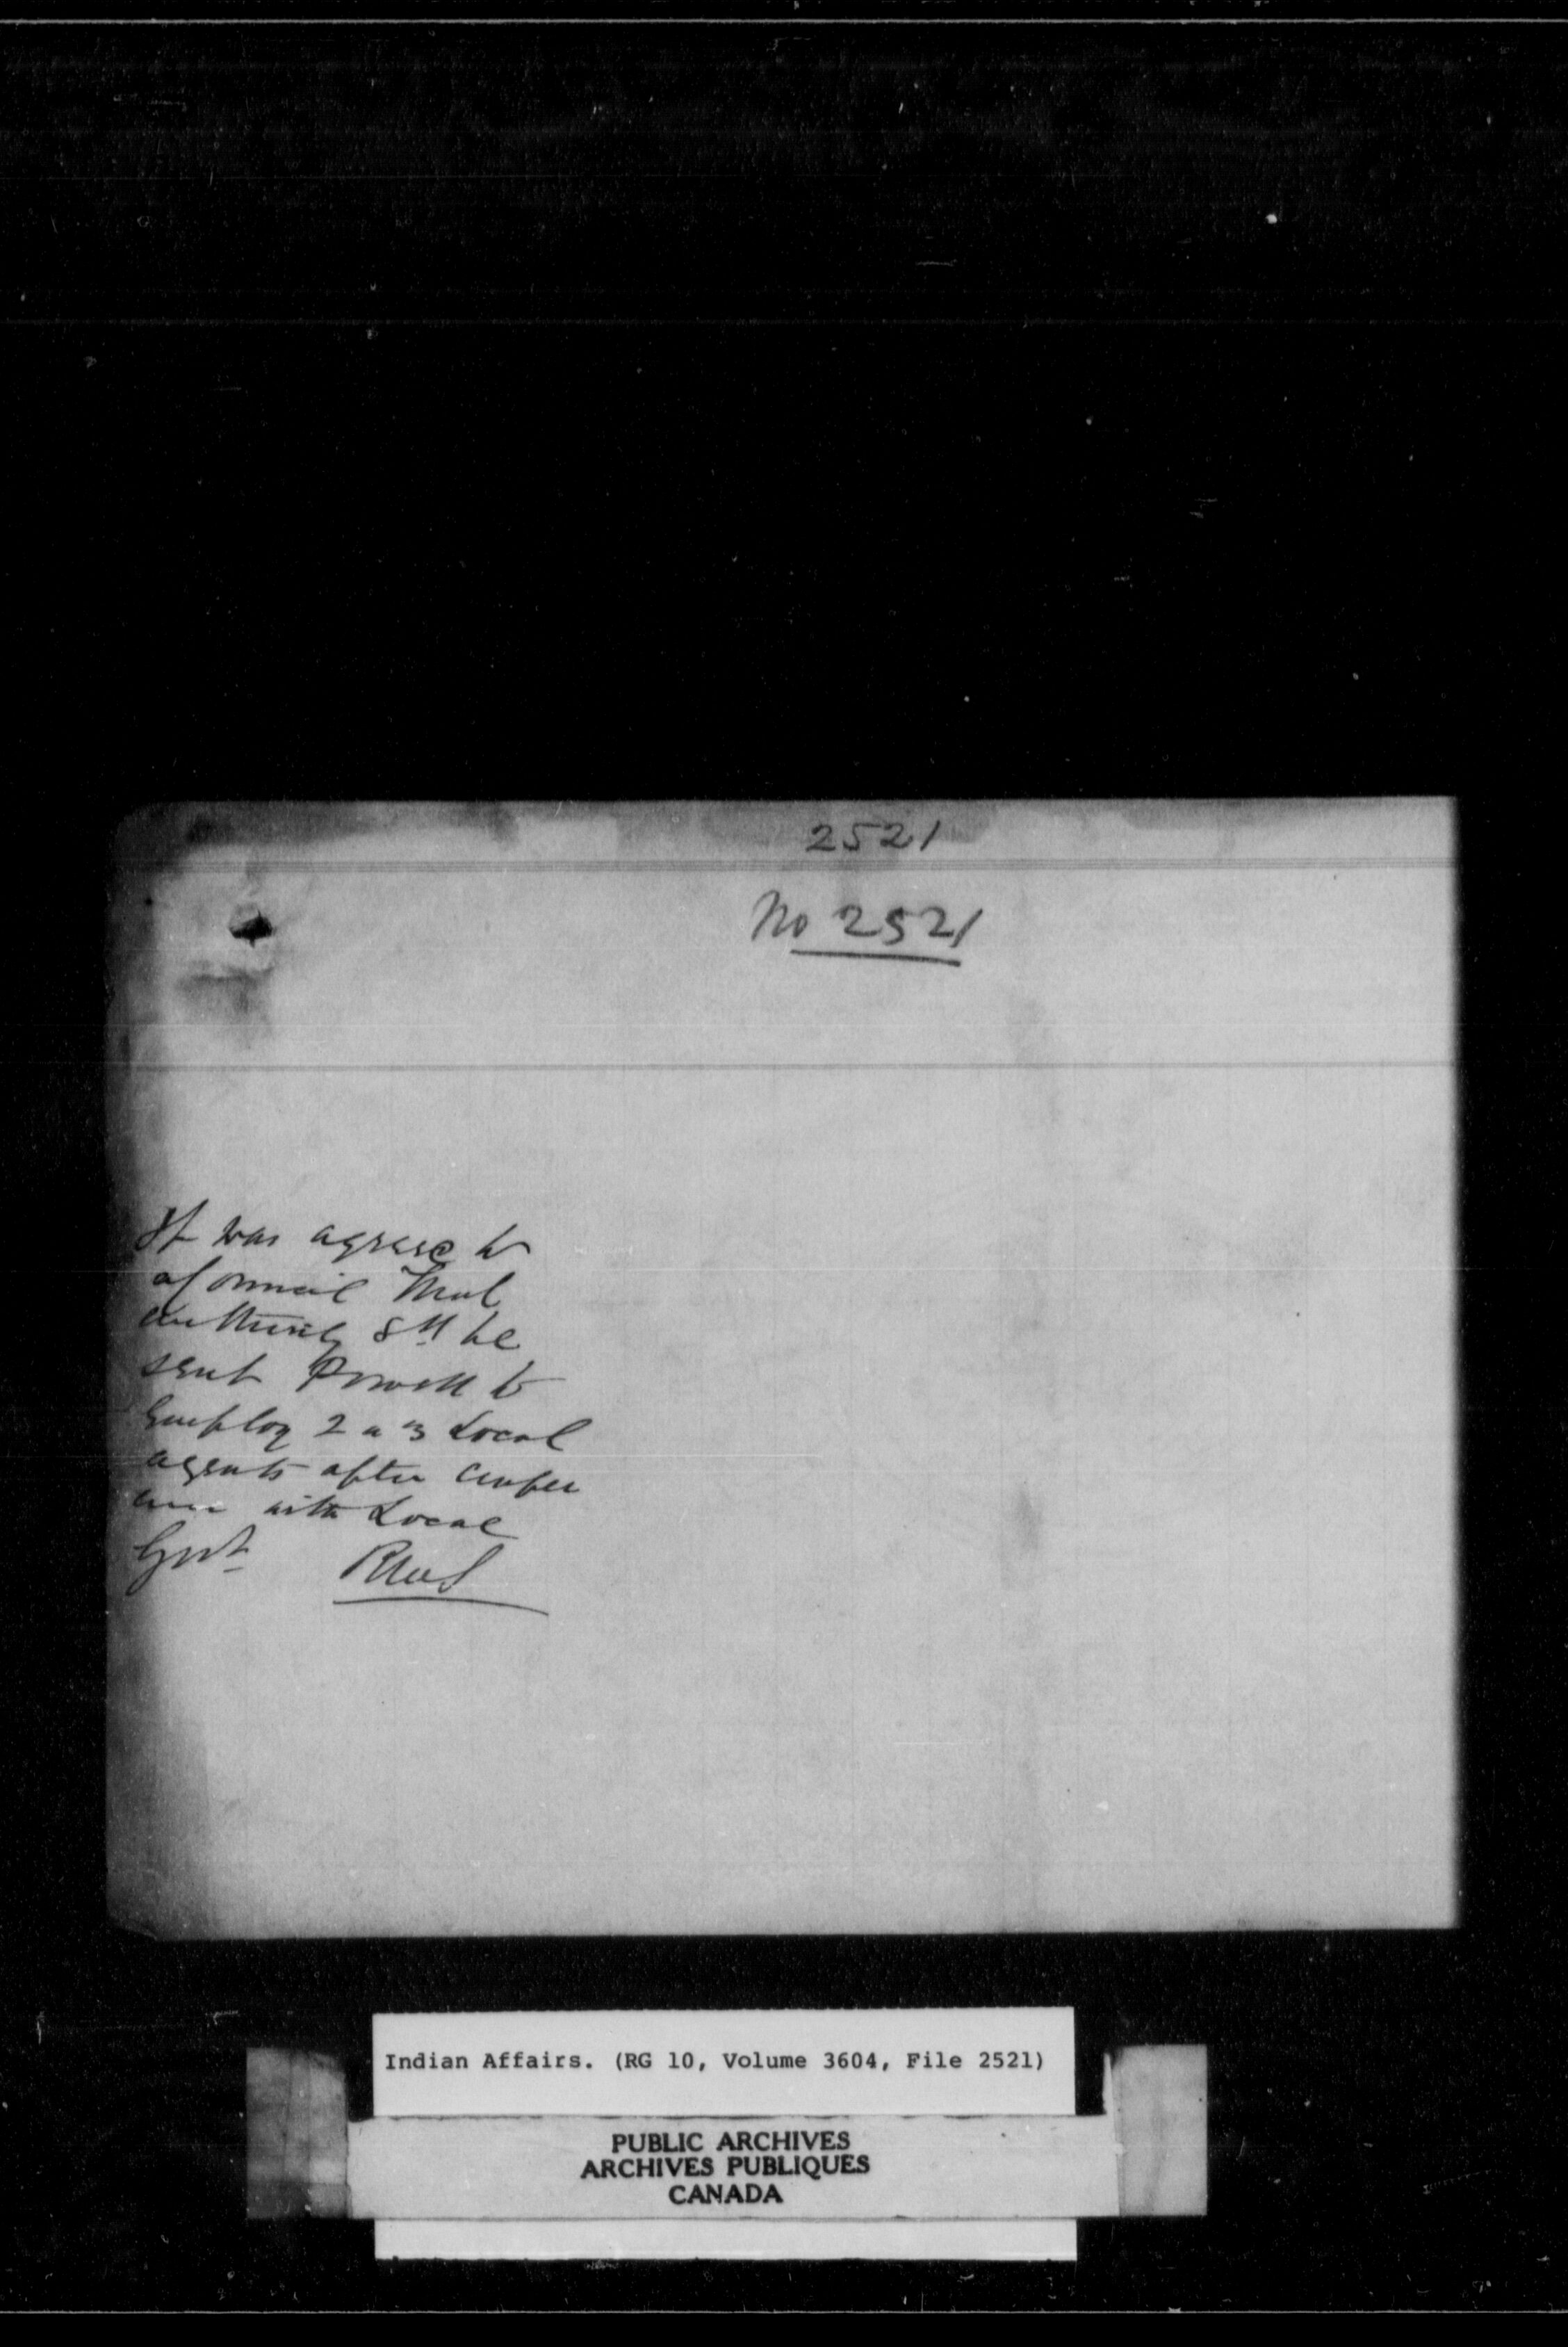 2521
No 2521
It was agreed to
at Council that
authority sd be
sent Powell to
Employ 2 or 3 Local
agents after confer
ence with Local
Govt
Indian Affairs. (RG 10, Volume 3604, File 2521)
PUBLIC ARCHIVES
ARCHIVES PUBLIQUES
CANADA